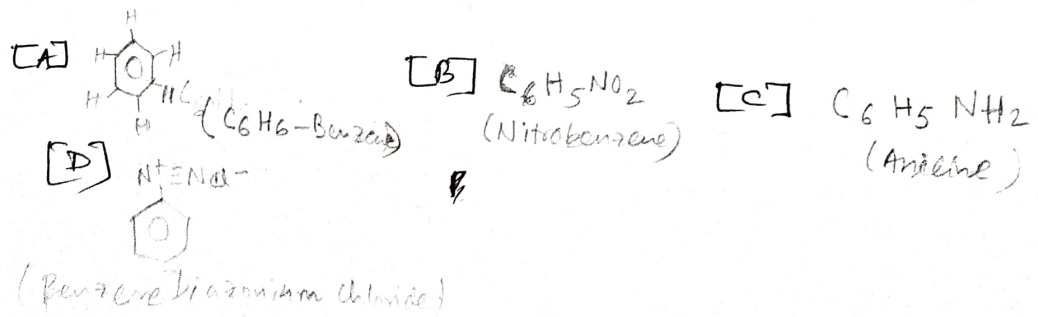 [A]
H
H
H
H
H
H
(C6H6-Benzene)
[B] C6H5NO2
(Nitrobenzene)
[C] C6H5NH2
(Aniline)
[D]
N+≡NCl-
(Benzene Diazonium Chloride)